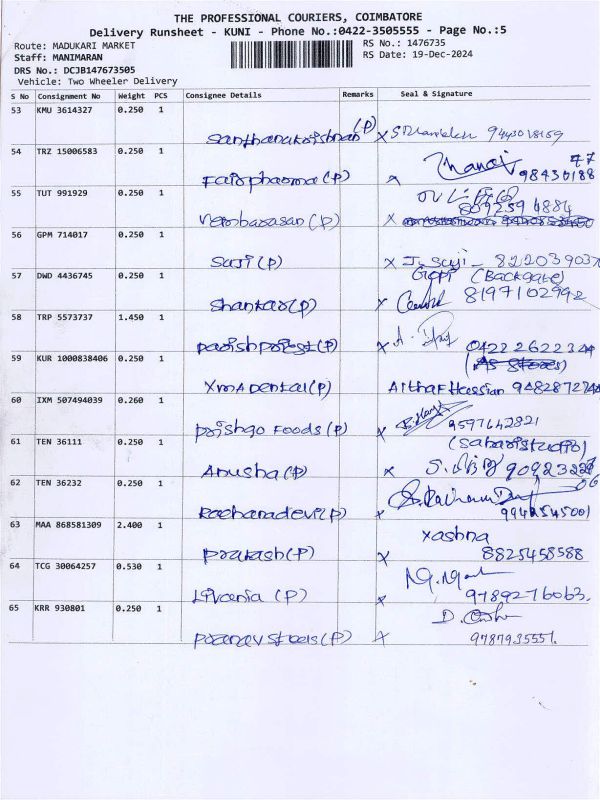 THE PROFESSIONAL COURIERS, COIMBATORE
Delivery Runsheet - KUNI - Phone No.:0422-3505555 - Page No.:5
Route: MADUKARI MARKET
RS No.: 1476735
Staff: MANIMARAN
RS Date: 19-Dec-2024
DRS No.: DCJB147673505
Vehicle: Two Wheeler Delivery
S No Consignment No Weight PCS Consignee Details Remarks Seal & Signature
53 KMU 3614327 0.250 1
Santhanakrishnan (P) X
54 TRZ 15006583 0.250 1
Fairpharma (P) Manoj 77
98430188
55 TUT 991929 0.250 1
Vembarasan (P) X
56 GPM 714017 0.250 1
Saji (P) X J. Saji - 822039037
57 DWD 4436745 0.250 1
Gopi (Backgate)
Shankar (P) X 8197102992
58 TRP 5573737 1.450 1
Parish priest (P) X
59 KUR 1000838406 0.250 1
(As Stores)
Xma Dental (P) Althaf Hussian
60 IXM 507494039 0.260 1
Prishgo Foods (P) X 9597642821
61 TEN 36111 0.250 1
Anusha (P) X
62 TEN 36232 0.250 1
Rachanadevi (P) X 9942545001
63 MAA 868581309 2.400 1
Xashna
Prakash (P) X 8825458588
64 TCG 30064257 0.530 1
Livania (P) X 9789276063.
65 KRR 930801 0.250 1
Pranav Steels (P) X 9787935551.